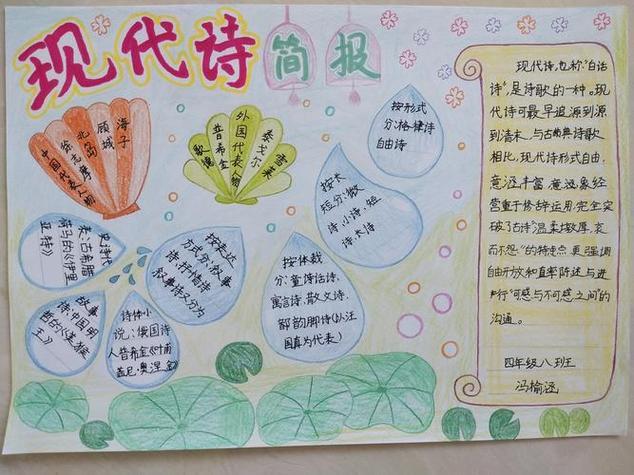 现代诗
简报
中国代表人物
徐志摩
北岛
顾城
海子
外国代表人物
普希金
歌德
泰戈尔
雪莱
按形式
分:格律诗
自由诗
按长
短分:微
诗、小诗、短
诗、长诗
按表达
方式分:叙事
诗、抒情诗
叙事诗又分为
史诗代
表:古希腊
荷马的《伊里
亚特》
故事
诗:中国阮
章的《漳
王》
诗体小
说:俄国诗
人普希金《叶甫
盖尼·奥涅金》
按体裁
分:童诗话诗、
寓言诗、散文诗、
韵脚诗(以汪
国真为代表)
现代诗,也称"白话
诗",是诗歌的一种。现
代诗可最早追源到源
到清末,与古典诗歌
相比,现代诗形式自由,
意涵丰富,意象经
营重于修辞运用,完全突
破了古诗"温柔敦厚,哀
而不怨"的特点,更强调
自由开放和直率陈述与进
行"可感与不可感之间"的
沟通。
四年级八班王
冯榆涵